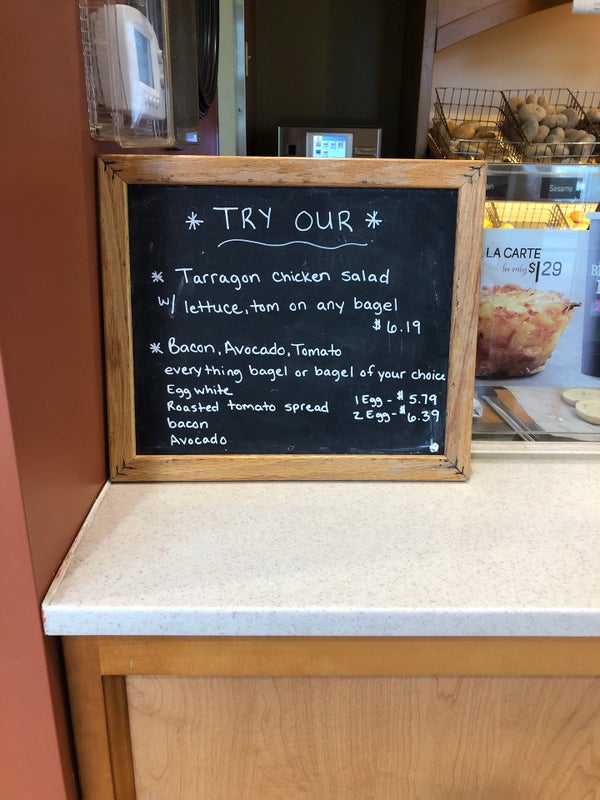 * TRY OUR *
* Tarragon chicken salad
w/ lettuce, tom on any bagel
$6.19
* Bacon, Avocado, Tomato
everything bagel or bagel of your choice
Egg white
Roasted tomato spread
bacon
Avocado
1 Egg - $5.79
2 Egg - $6.39
Sesame
LA CARTE
for only $1.29